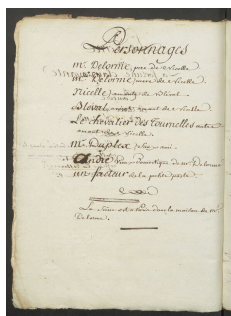 Personnages
mr Delorme, pere de Nicelle
me Delorme, mere de Nicelle
Nicelle, amante de Bleval
Bléval, amant de Nicelle
Le chevalier des Tournelles autre
amant de Nicelle
mr Duplex, ami
André, Domestique de mr Delorme
un facteur de la petite poste
La Scene est a Paris dans la maison de mr
Delorme